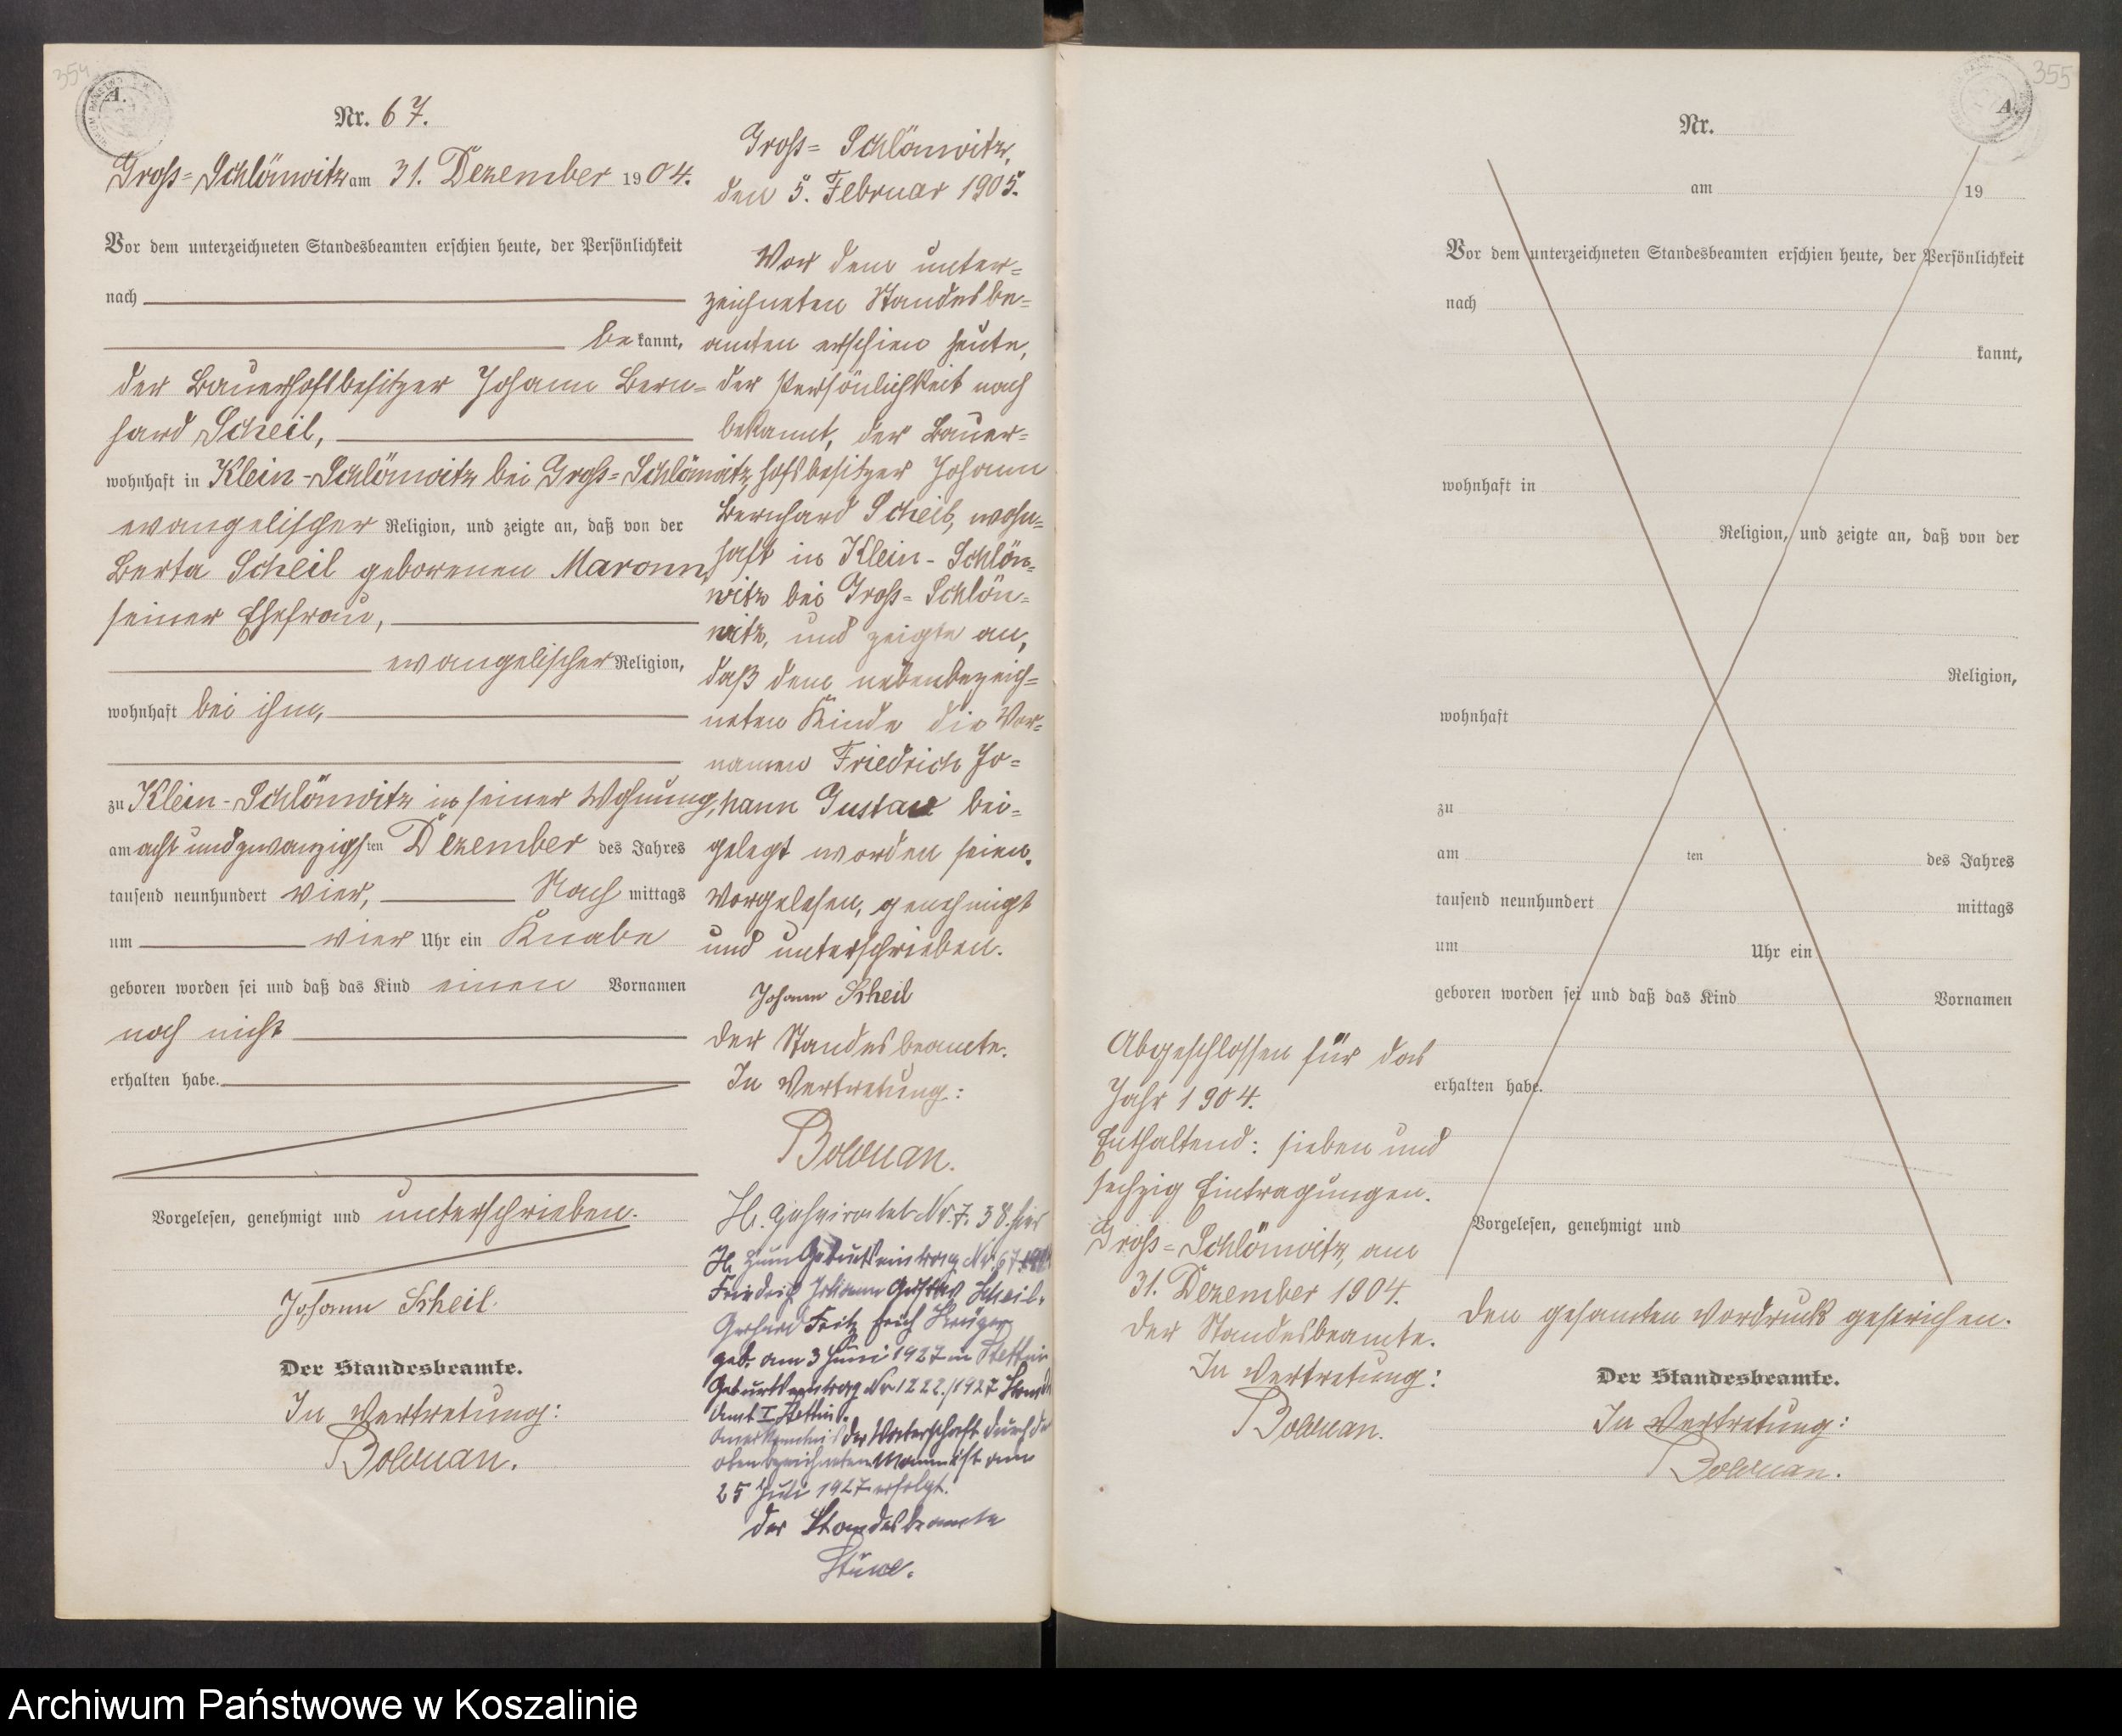 354
A.
Nr. 67.
Groß-Schlönwitz am 31. Dezember 1904.
Vor dem unterzeichneten Standesbeamten erschien heute, der Persönlichkeit
nach
be kannt,
der Bauerhofbesitzer Johann Bern-
hard Scheil,
wohnhaft in Klein-Schlönwitz bei Groß-Schlönwitz,
evangelischer Religion, und zeigte an, daß von der
Berta Scheil geborenen Maronn,
seiner Ehefrau,
evangelischer Religion,
wohnhaft bei ihm,
zu Klein-Schlönwitz in seiner Wohnung,
am acht und zwanzigsten Dezember des Jahres
tausend neunhundert vier, Nach mittags
um vier Uhr ein Knabe
geboren worden sei und daß das Kind einen Vornamen
noch nicht
erhalten habe.
Vorgelesen, genehmigt und unterschrieben.
Johann Scheil.
Der Standesbeamte.
In Vertretung:
Groß-Schlönwitz,
den 5. Februar 1905.
Vor dem unter-
zeichneten Standesbe-
amten erschien heute,
der Persönlichkeit nach
bekannt, der Bauer-
hofsbesitzer Johann
Bernhard Scheil, wohn-
haft in Klein-Schlön-
witz bei Groß-Schlön-
witz, und zeigte an,
daß dem nebenbezeich-
neten Kinde die Vor-
namen Friedrich Jo-
hann Gustav bei-
gelegt worden seien.
Vorgelesen, genehmigt
und unterschrieben.
Johann Scheil
Der Standesbeamte.
In Vertretung:
H. geheiratet Nr. 7. 38. hier
H. zum Geburtseintrag Nr. 67
Friedrich Johann Gustav Scheil.
Gerhard Fritz Erich Krüger
geb. am 3 Juni 1927 in Stettin
Geburtseintrag Nr 1222./1927
Amt I Stettin.
Anerkenntnis der Vaterschaft durch
oben bezeichneten Mann ist am
25 Juli 1927 erfolgt.
Der Standesbeamte
355
A.
Nr.
am 19
Vor dem unterzeichneten Standesbeamten erschien heute, der Persönlichkeit
nach
kannt,
wohnhaft in
Religion, und zeigte an, daß von der
Religion,
wohnhaft
zu
am ten des Jahres
tausend neunhundert mittags
um Uhr ein
geboren worden sei und daß das Kind Vornamen
erhalten habe.
Vorgelesen, genehmigt und
Abgeschlossen für das
Jahr 1904.
Enthaltend: sieben und
sechzig Eintragungen.
Groß-Schlönwitz, am
31. Dezember 1904.
Der Standesbeamte.
In Vertretung:
Den gesamten Vordruck gestrichen.
Der Standesbeamte.
In Vertretung:
Archiwum Państwowe w Koszalinie